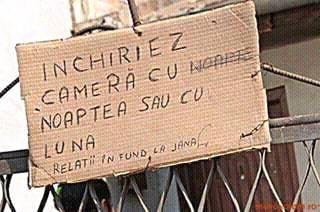 INCHIRIEZ
CAMERĂ CU NOAPTE
NOAPTEA SAU CU
LUNA
RELAȚII ÎN FUND LA JANA